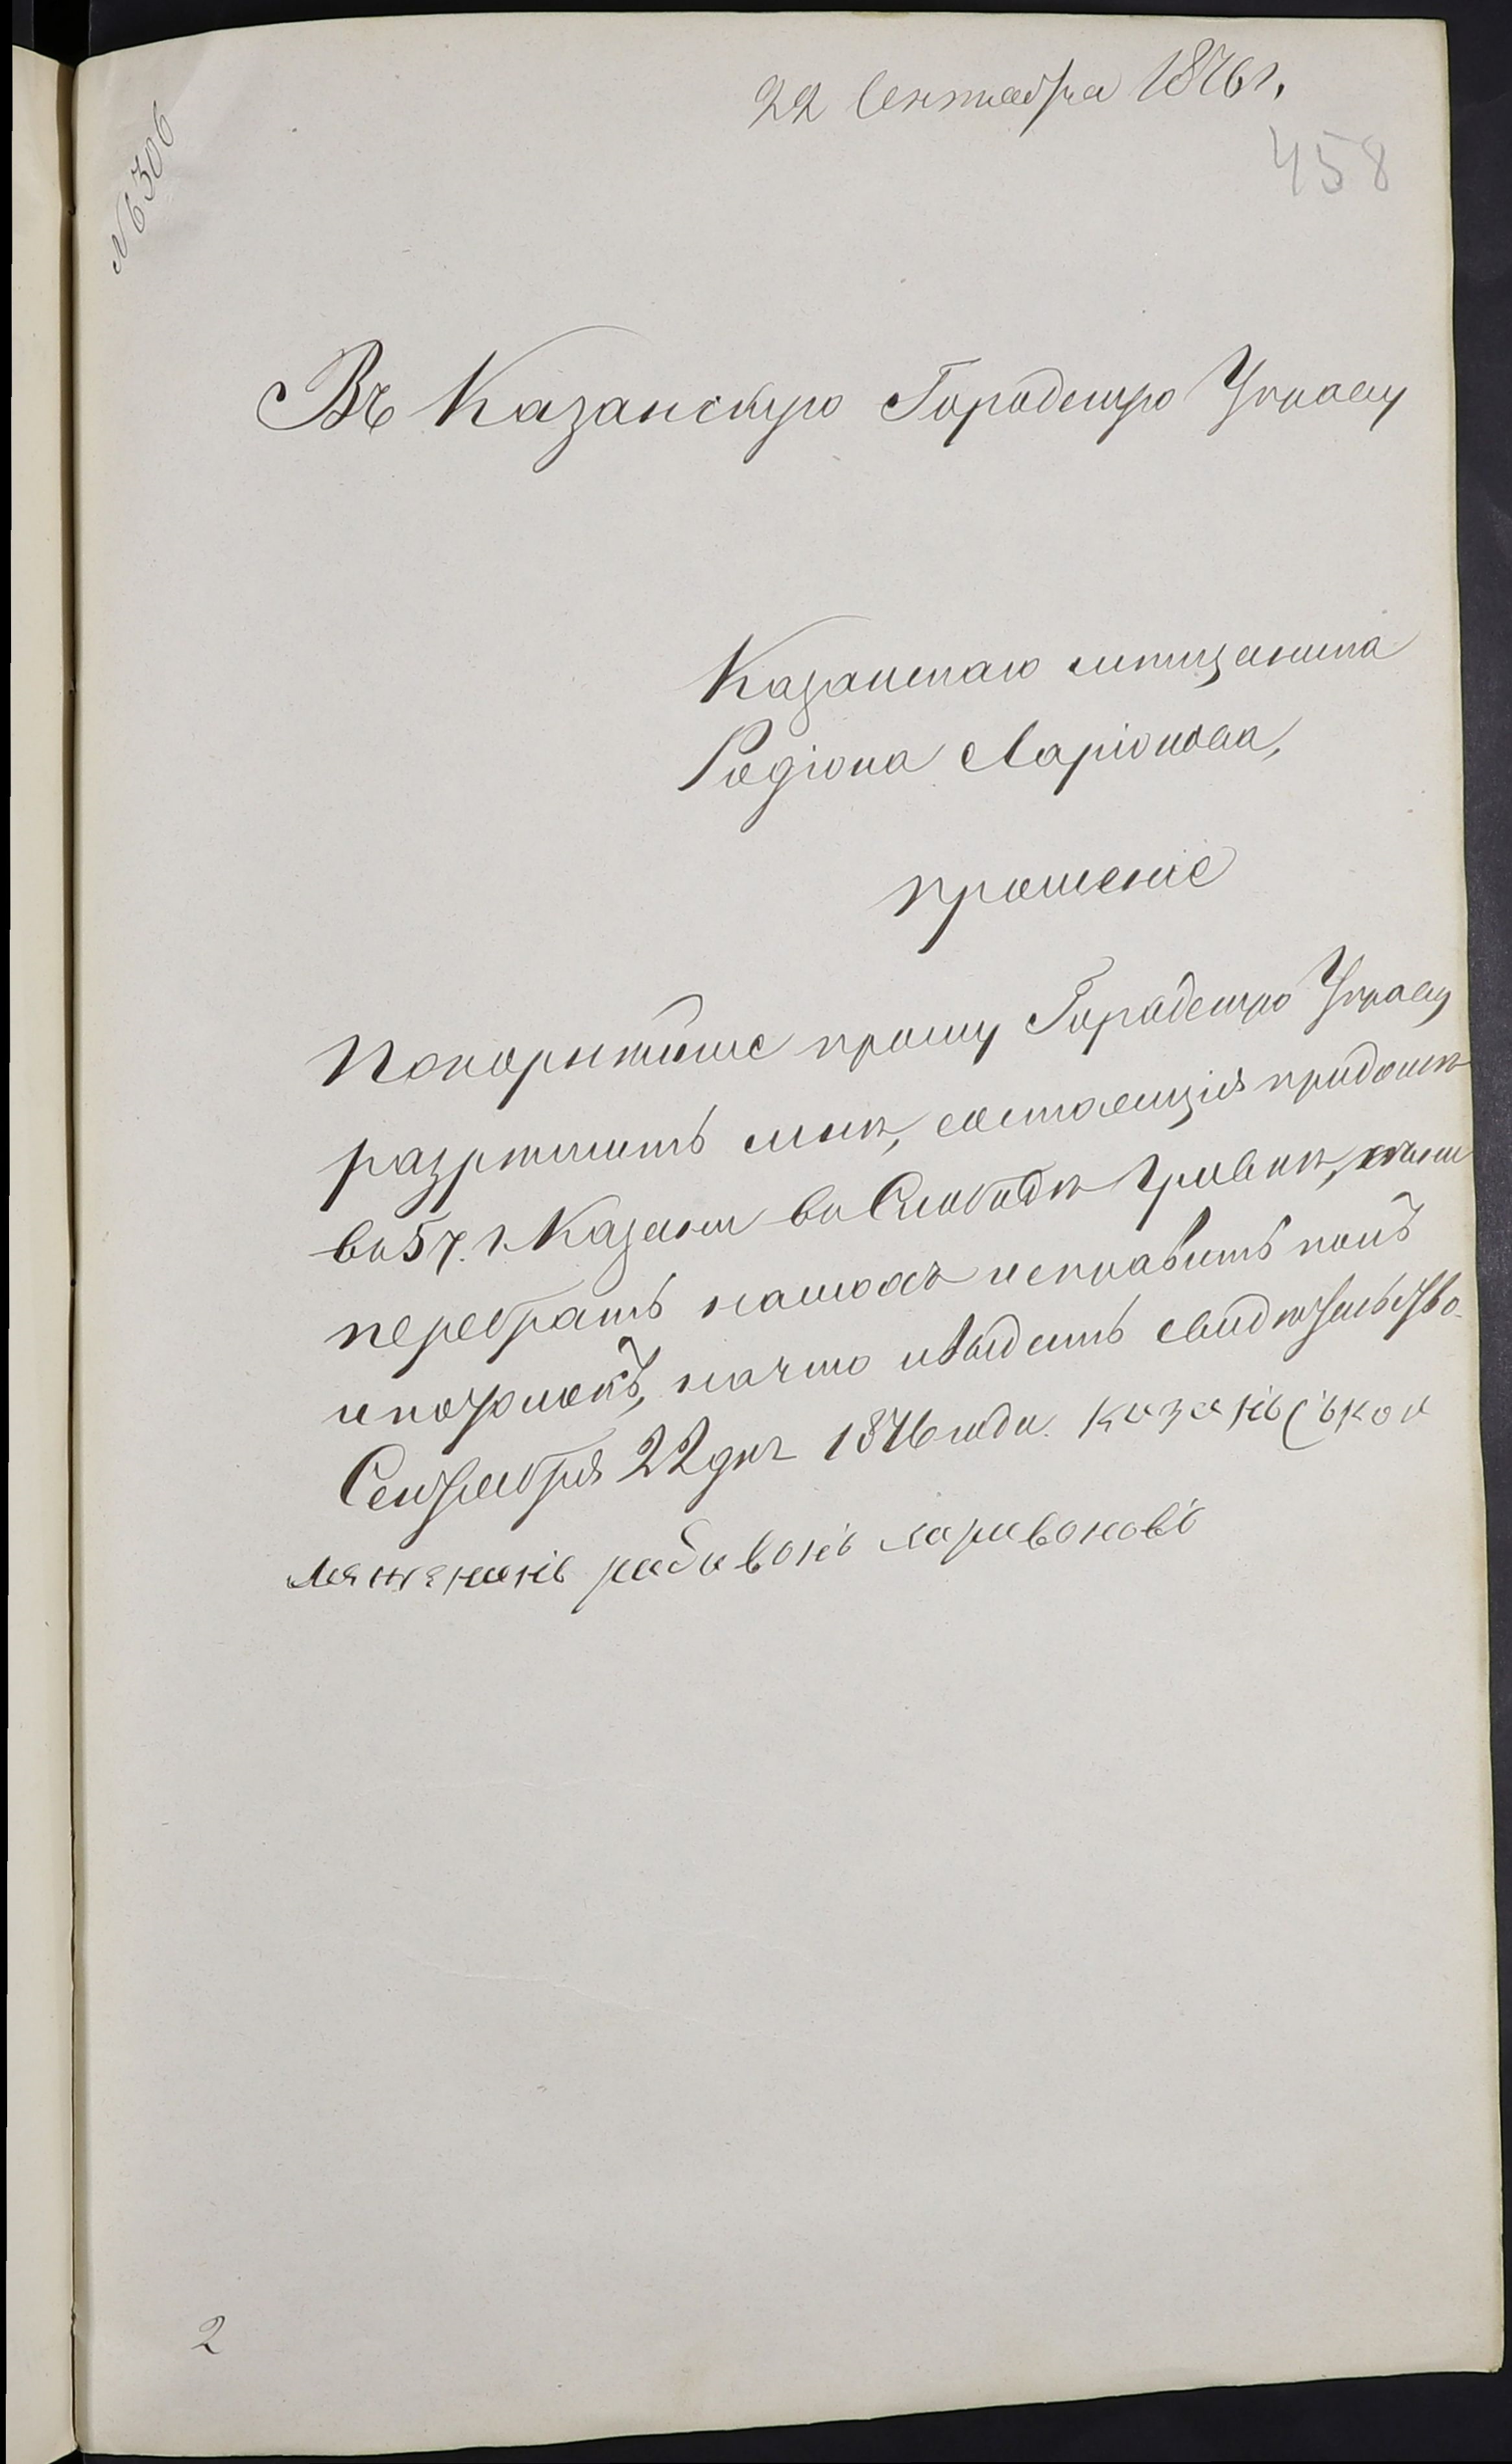 22 Сентября 1876 г.
458
№ 6306
Въ Казанскую Городскую Управу
Казанскаго мѣщанина
Родіона Ларіонова,
прошеніе
Покорнѣйше прошу Городскую Управу
разрѣшить мнѣ, состоящія при домѣ
въ 5 ч. г. Казани въ Слободѣ Гривкѣ,
перебрать исправить полъ
и потолокъ, на что и выдать свидѣтельство.
Сентября 22 дня 1876 года. казаньской
мящанинь радивонь ларивоновъ
2